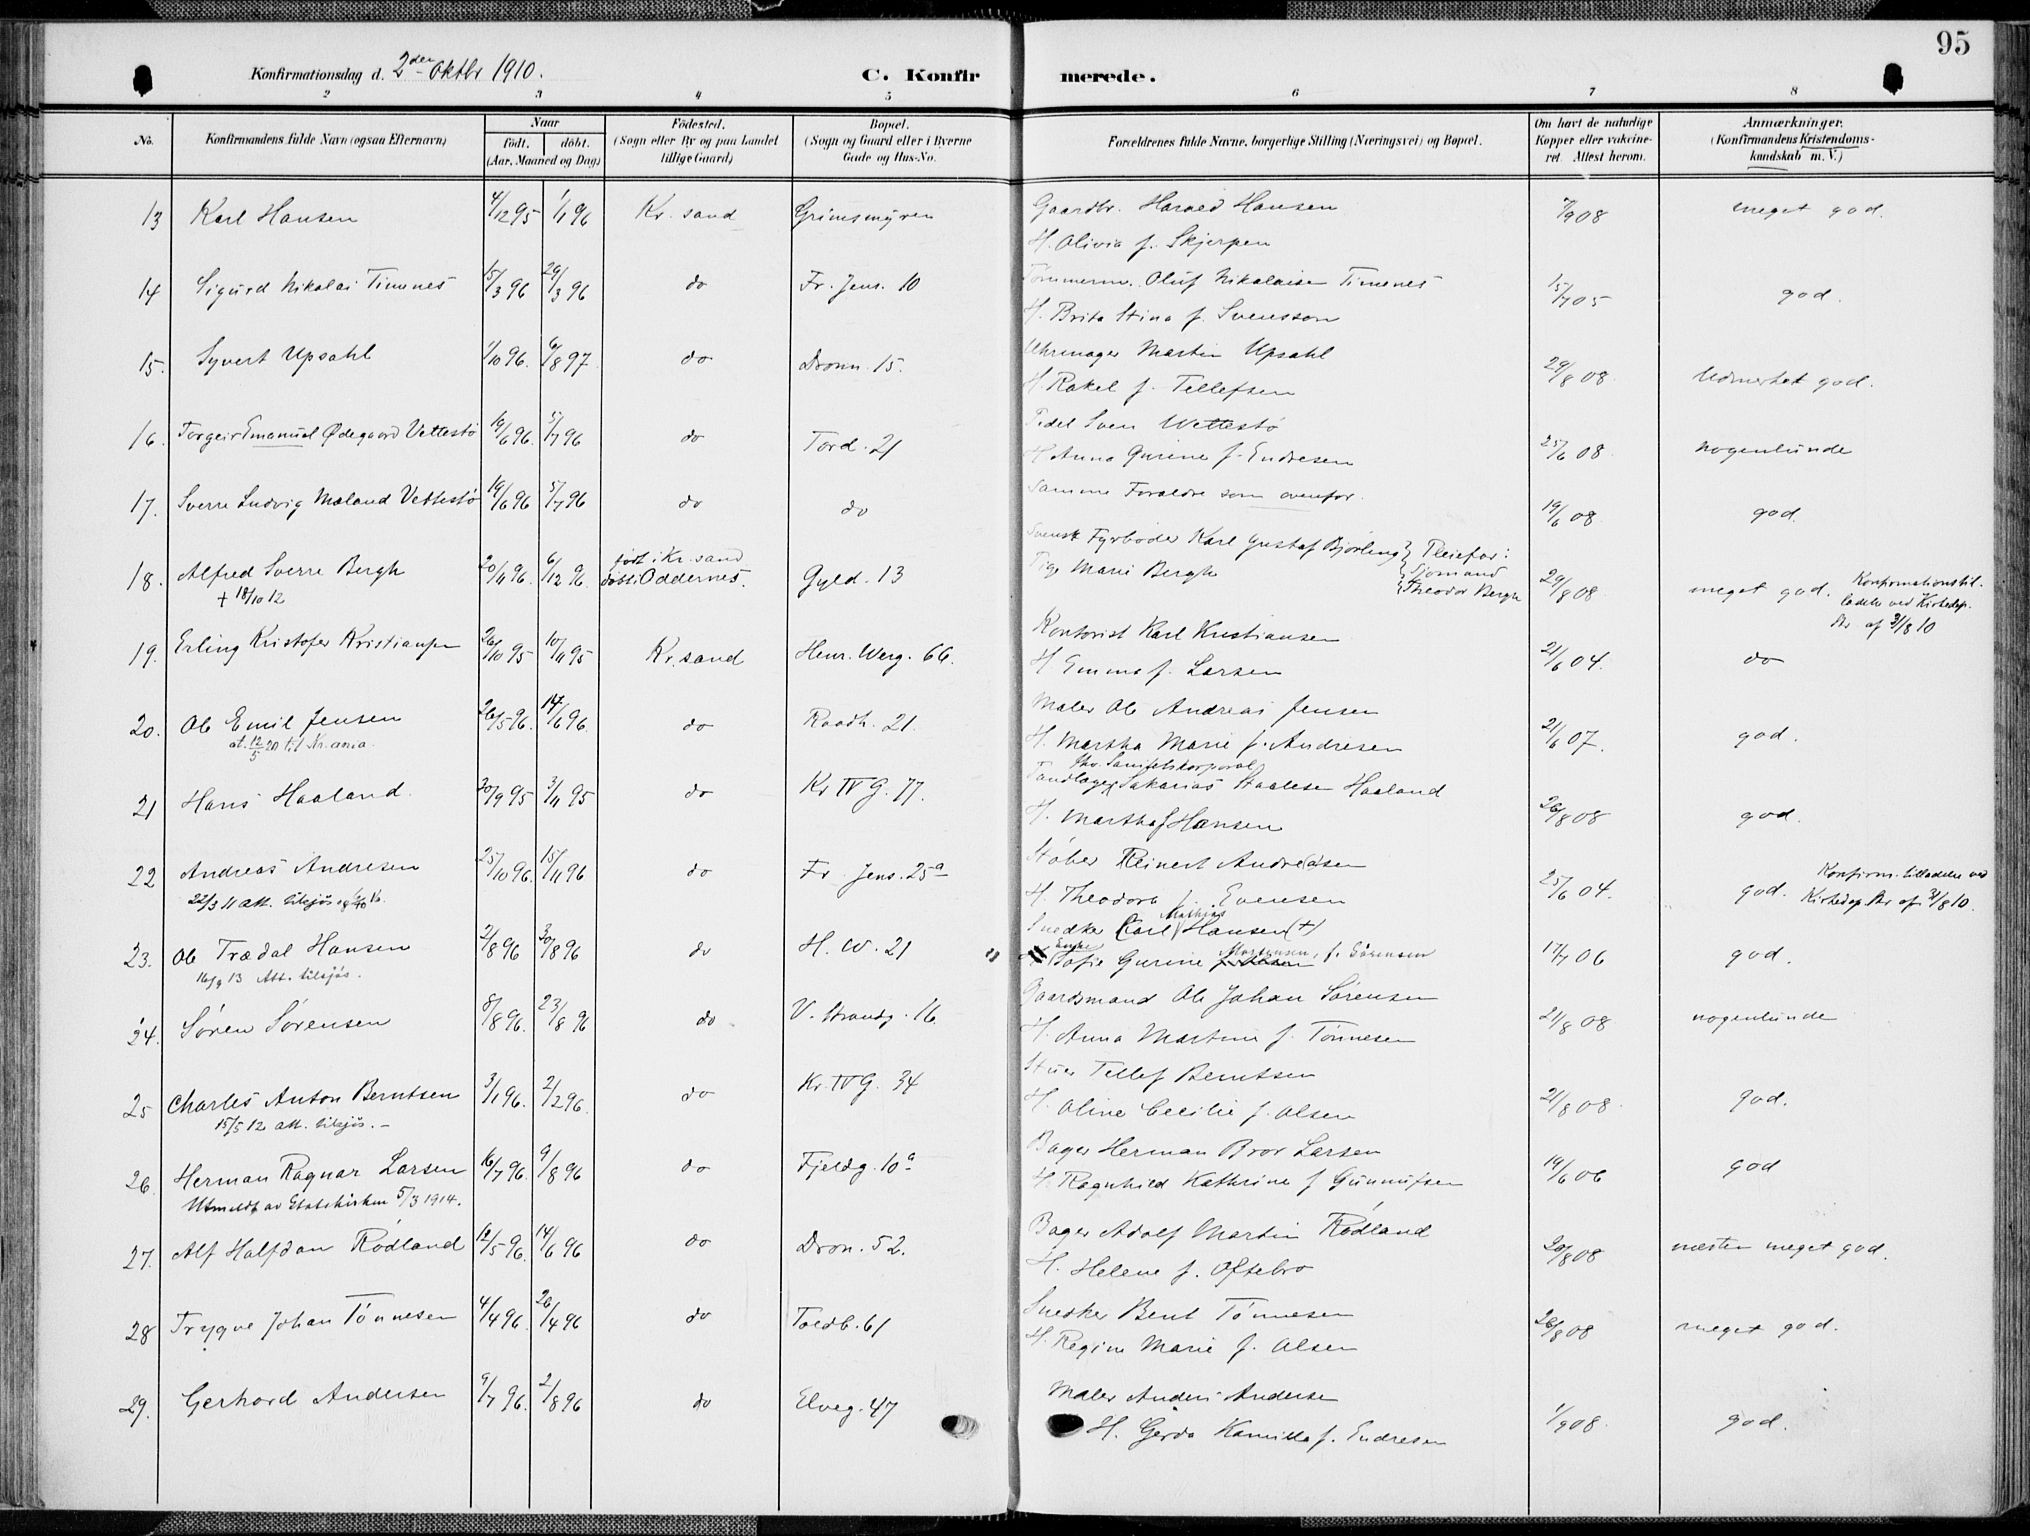 95
Konfirmationsdag d. 2den Oktbr 1910.
C. Konfirmerede.
2 3 4 5 6 7 8
No. Konfirmandens fulde Navn (ogsaa Efternavn) Naar født. døbt. (Aar, Maaned og Dag) Fødested. (Sogn eller By og paa Landet tillige Gaard) Bopæl. (Sogn og Gaard eller i Byerne Gade og Hus-No. Forældrenes fulde Navne, borgerlige Stilling (Næringsvei) og Bopæl. Om havt de naturlige Kopper eller vakcineret. Attest herom. Anmærkninger. (Konfirmandens Kristendomskundskab m. V.)
13 Karl Hansen 4/12 95 1/1 96 Kr. sand Grimsmyren Gaardbr. Harald Hansen 7/9 08 meget god.
H. Olivia f. Skjerpen
14 Sigurd Nikolai Timnes 15/3 96 29/3 96 do Fr. Jens. 10 Tømmerm. Oluf Nikolaisen Timenes 15/7 05 god.
H. Brita Stina f. Svensson
15. Syvert Upsahl 1/10 96. 6/8 97 do Dronn. 15. Uhrmager Martin Upsahl 29/8 08. Udmerket god.
H. Rakel f. Tellefsen
16. Torgeir Emanuel Ødegaard Vettestø 19/6 96. 5/7 96 do Tord. 21 Pedel Sven Wettestø 25/6 08. nogenlunde
H Anna Gurine f. Endresen
17. Sverre Ludvig Maland Vettestø 19/6 96 5/7 96 do do Samme Forældre som ovenfor. 19/6 08. god.
18. Alfred Sverre Bergh 20/11 96. 6/12 96. født i Kr. sand døbt i Oddernes. Gyld. 13 Svensk Fyrbøder Karl Gustaf Bjørling Pleiefar: Sjømand Theodor Bergh 29/8 08 meget god. Konfirmationstilladelse ved Kirkedep. Skr. af 3/8 10
+ 18/10 12
Pige Marie Bergh
19. Erling Kristofer Kristiansen 26/10 95 10/11 95 Kr. sand Henr. Werg. 66. Kontorist Karl Kristiansen 21/6 04. do
H Emma f. Larsen
20. Ole Emil Jensen 26/5 96. 14/6 96. do Raadh. 21. Maler Ole Andreas Jensen 21/6 07. god.
at. 12/5 20 til Kr.ania.
H. Martha Marie f. Andresen
21 Hans Haaland. 20/9 95 3/11 95 do Kr IV G. 77. Tandlæge Sakarias Staalesen Haaland 26/8 08 god.
H. Martha f Hansen
22 Andreas Andresen 25/10 96. 15/11 96 do Fr. Jens. 25a Støber Reinert Andre(a)sen 25/6 04. god. Konfirm. tilladelse ved Kirkedep. Skr af 3/8 10.
22/3 11 att. tilsjøs
H. Theodora f. Evensen
23. Ole Trædal Hansen 2/8 96 30/8 96 do H. W. 21 Snedker Carl Mathias Hansen (+) 17/7 06 god.
16/9 13 Att. tilsjøs.
Enke Sofie Gurine Mortensen, f. Sørensen
24. Søren Sørensen 8/8 96. 23/8 96 do V. Strandg. 16. Gaardsmand Ole Johan Sørensen 21/8 08 nogenlunde
H. Anna Martine f. Tønnesen
25 Charles Anton Berntsen 3/1 96. 2/2 96. do Kr. IV G. 34 Stuer Tellef Berntsen 21/8 08. god.
15/5 12 att. tilsjøs. -
H. Oline Cecilie f. Olsen
26. Herman Ragnar Larsen 16/7 96. 9/8 96 do Fjeldg. 10a Bager Herman Bror Larsen 19/6 06 god
Utmeldt av Statskirken 5/3 1914.
H. Ragnhild Kathrine f Gunnufsen
27. Alf Halfdan Rødland 12/5 96. 14/6 96 do Dron. 52. Bager Adolf Martin Rødland 20/8 08 næsten meget god.
H. Helene f. Oftebro
28 Trygve Johan Tønnesen 4/4 96. 26/4 96 do Toldb. 61 Snedker Bent Tønnesen 26/8 08 meget god.
H. Regine Marie f. Olsen
29. Gerhard Andersen 9/7 96. 2/8 96 do Elveg. 47 Maler Anders Andersen 1/9 08. god.
H. Gerda Kamilla f. Endresen